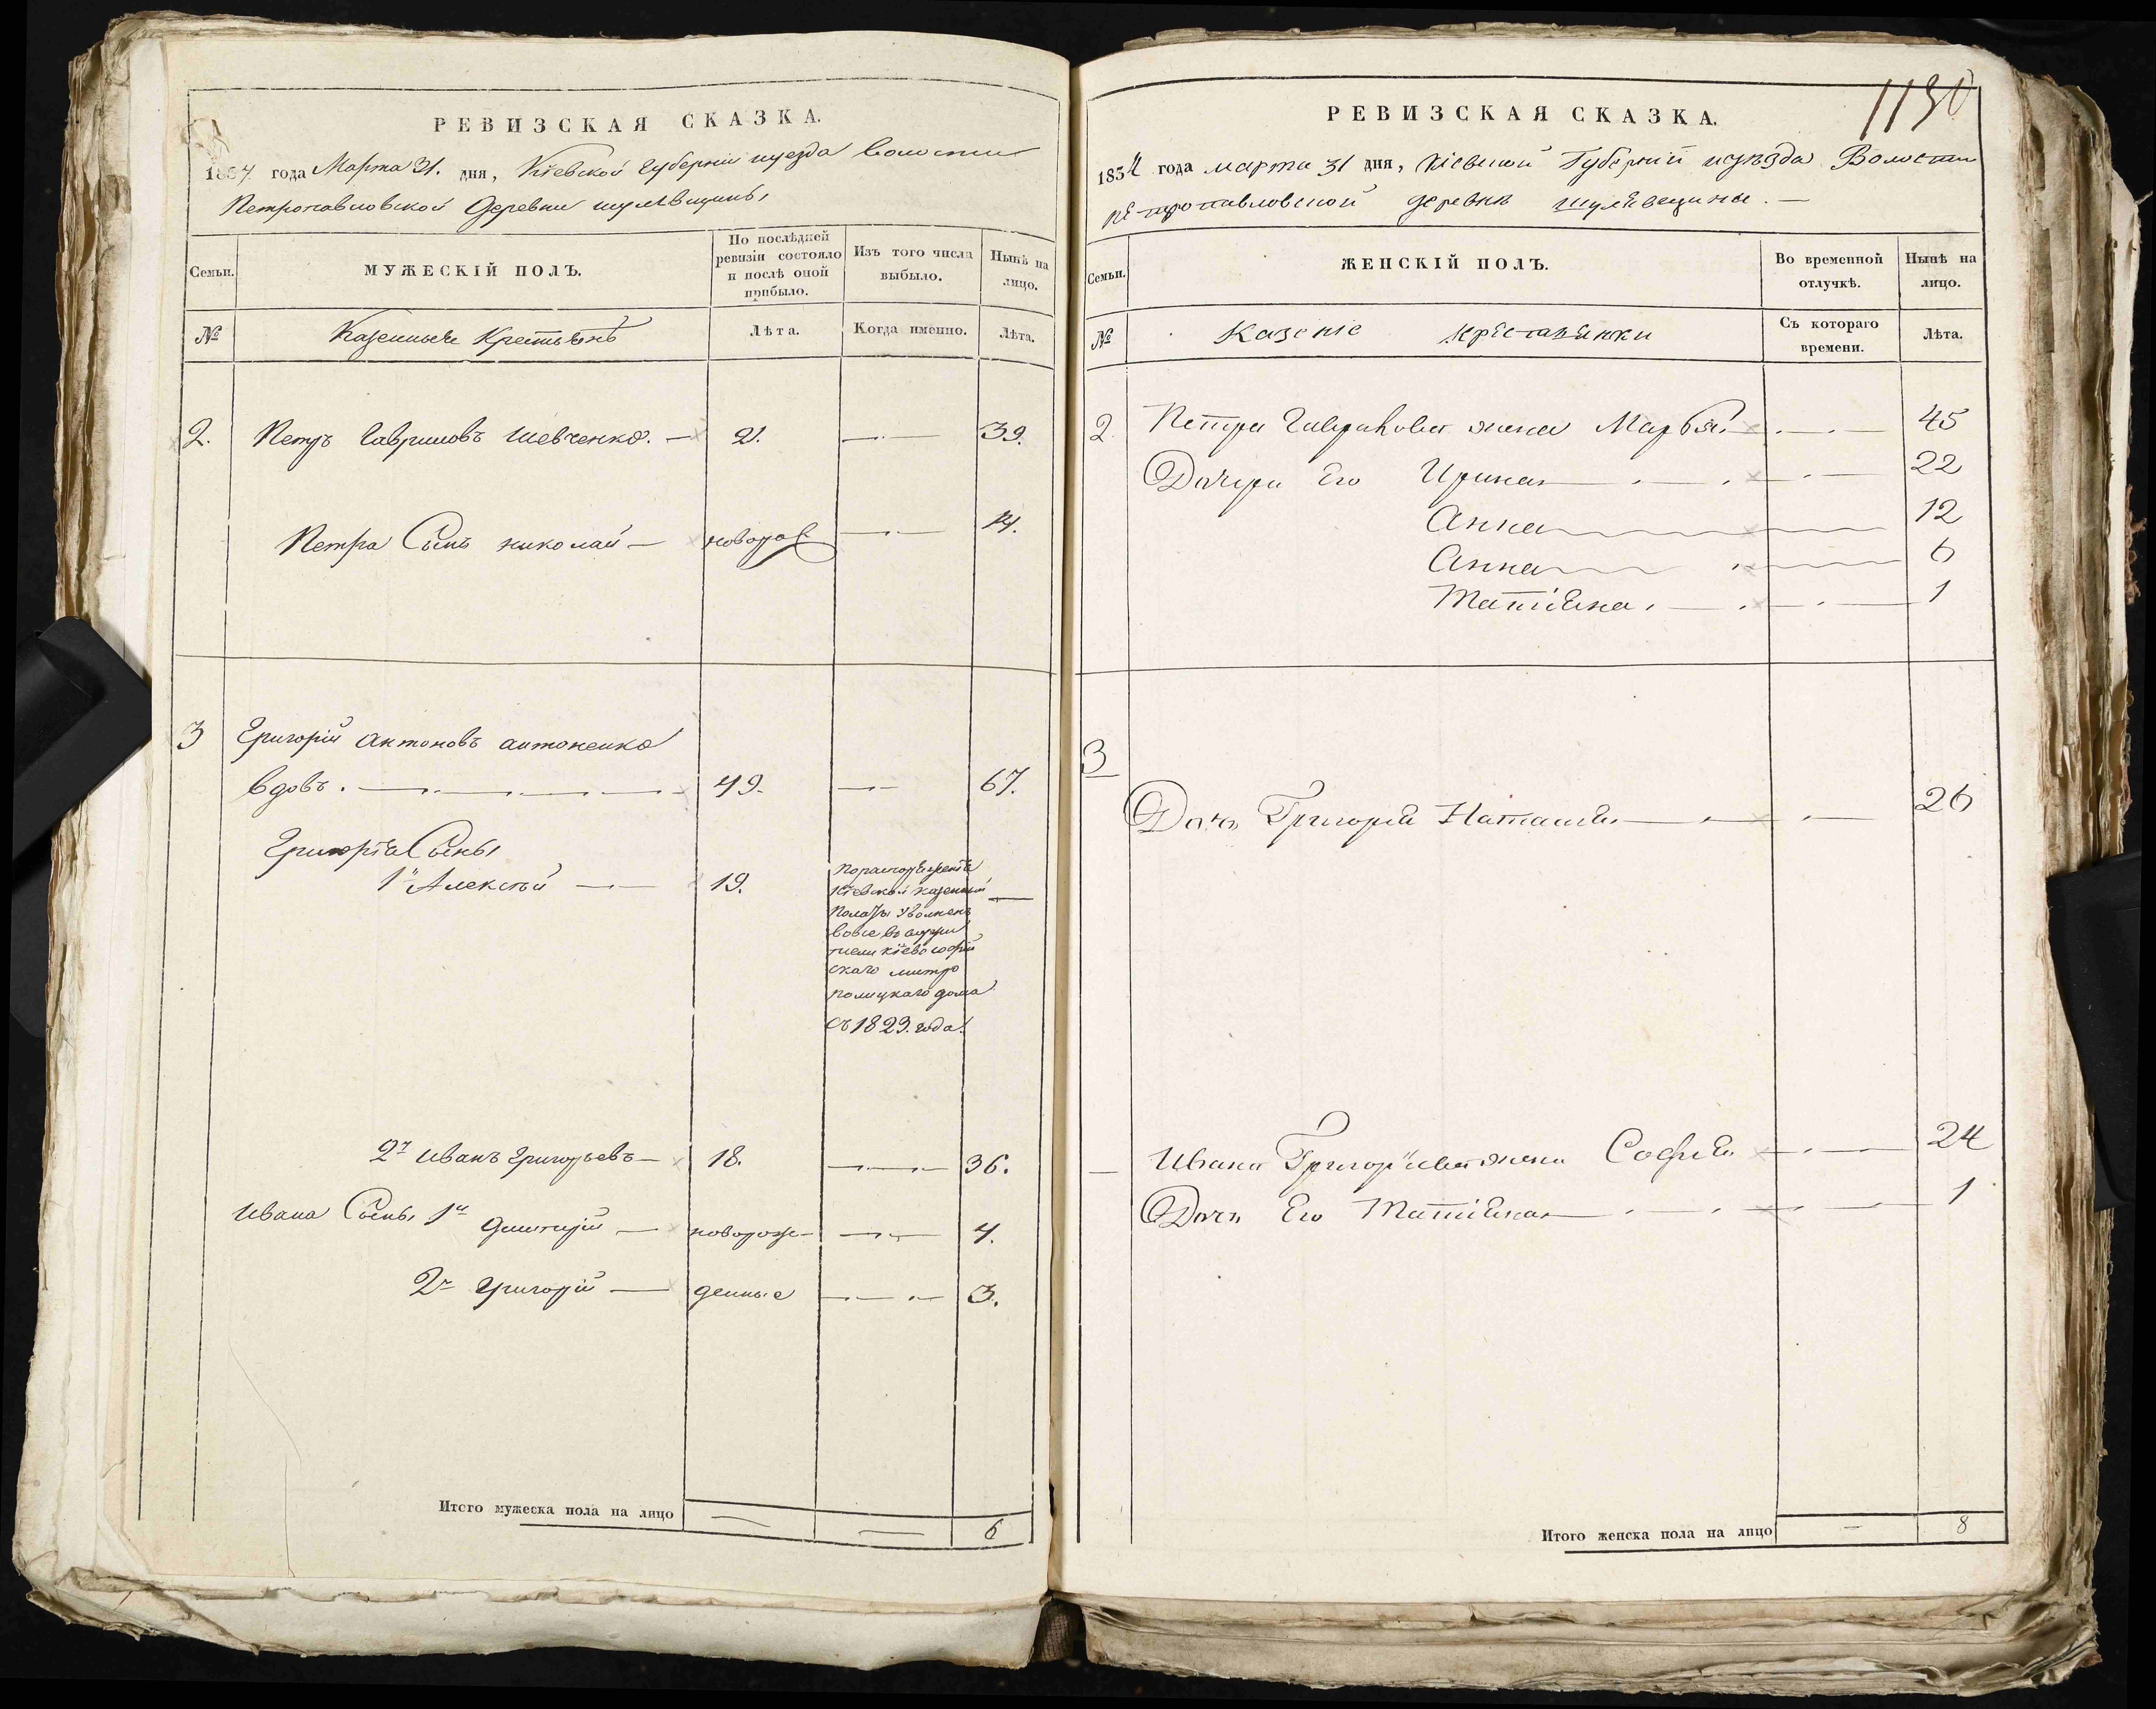 РЕВИЗСКАЯ СКАЗКА.
1834 года Марта 31. дня, Кіевской Губерніи и уезда Волости
Петропавловской Деревни шулявщины
Семьи.
МУЖЕСКІЙ ПОЛЪ.
По послѣдней ревизіи состояло и послѣ оной прибыло.
Изъ того числа выбыло.
Нынѣ на лицо.
№
Казенные Крестьянѣ
Лѣта.
Когда именно.
Лѣта.
2. Петръ Гавриловъ Шевченко. — 21. — 39.
Петра Сынъ николай — новорож — 14.
3 Григорій Антоновъ антоненко
вдовъ. — 49. — 67.
Григорія Сыны
1й Алексѣй — 19. —
Кіевской казенной
Полаты Уволненъ
вовсе въ служи
тели Кіево софій
скаго митро
полицкаго дома
съ 1829. года.
2й Иванъ Григорьевъ — 18. — 36.
Ивана Сыны 1й Дмитрій — новорож- — 4.
2й Григорій — денные — 3.
Итого мужеска пола на лицо — — 6
1130
РЕВИЗСКАЯ СКАЗКА.
1834 года марта 31 дня, Кіевской Губерніи и уѣзда Волости
Петропавловской деревнѣ шулявщины. —
Семьи.
ЖЕНСКІЙ ПОЛЪ.
Во временной отлучкѣ.
Нынѣ на лицо.
№
Казеніе крестьянки
Съ котораго времени.
Лѣта.
2. Петра Гаврилова жена Марья — 45
Дочери Его Ирина — 22
Анна — 12
Анна — 6
Татіяна — 1
3
Дочь Григорія Наталія — 26
— Ивана Григорьева жена Софія — 24
Дочь Его Татіяна — 1
Итого женска пола на лицо — 8